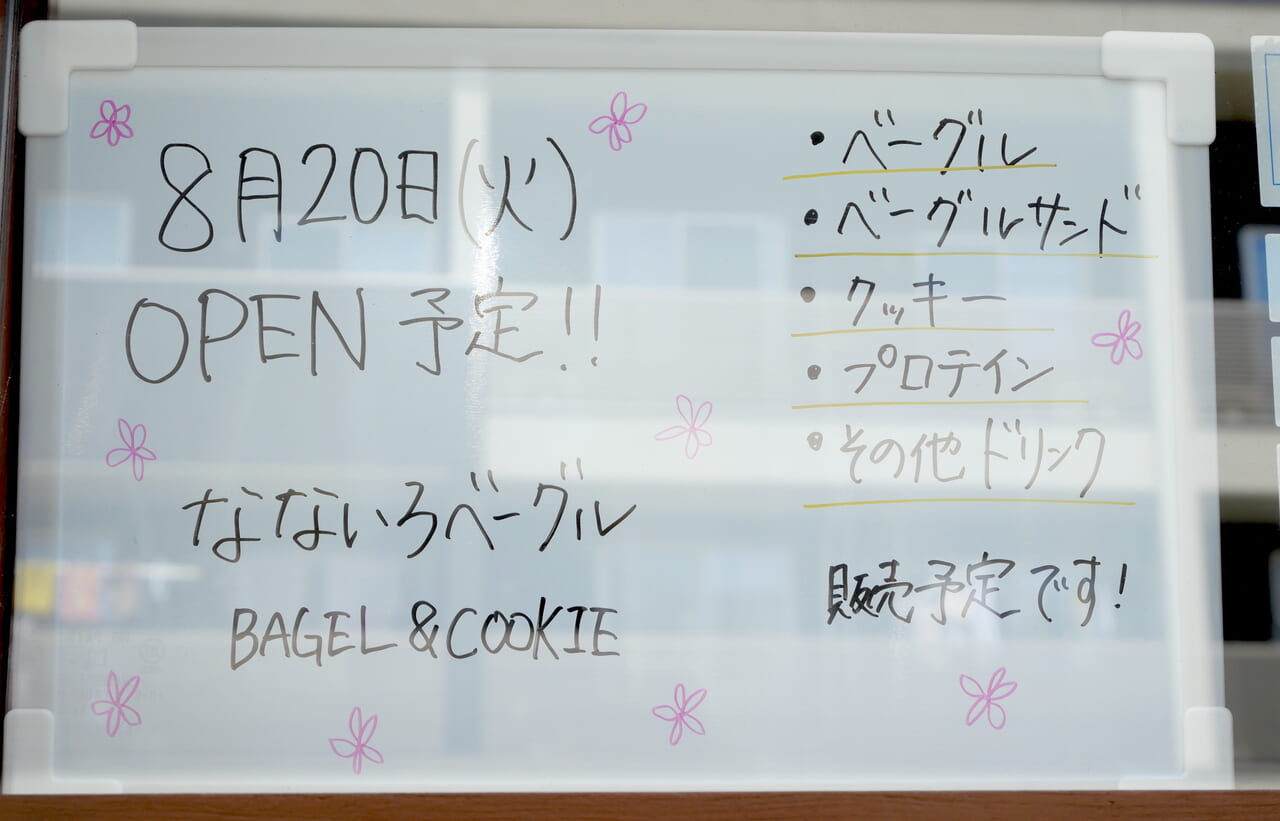 8月20日(火)
OPEN 予定!!
なないろベーグル
BAGEL & COOKIE
・ベーグル
・ベーグルサンド
・クッキー
・プロテイン
・その他ドリンク
販売予定です!